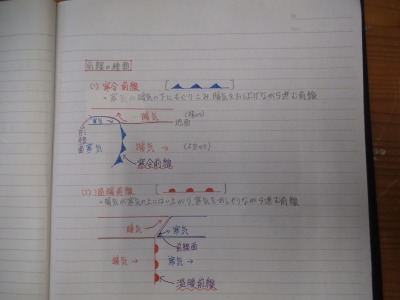 前線の種類
(1) 寒冷前線
・寒気が暖気の下にもぐりこみ、暖気をおしあげながら進む前線
寒気 →
暖気
(横から)
地面
前線面
寒気
暖気 →
(上から)
寒冷前線
(2) 温暖前線
・暖気が寒気の上にはい上がり、寒気をおしながら進む前線
暖気
寒気
前線面
暖気 →
寒気 →
温暖前線